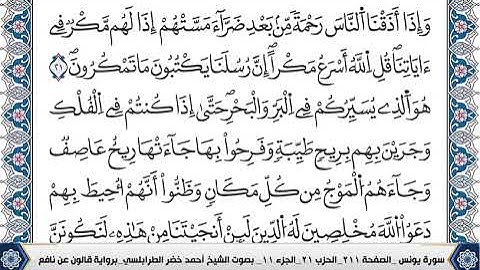 وَإِذَا أَذَقْنَا اَلنَّاسَ رَحْمَةً مِّنۢ بَعْدِ ضَرَّآءَ مَسَّتْهُمْ إِذَا لَهُم مَّكْرٌ فِے
ءَايَاتِنَا قُلِ اِللَّهُ أَسْرَعُ مَكْراً إِنَّ رُسُلَنَا يَكْتُبُونَ مَا تَمْكُرُونَ ٢١
هُوَ اَلذِے يُسَيِّرُكُمْ فِے اِلْبَرِّ وَالْبَحْرِ حَتَّىٰ إِذَا كُنتُمْ فِے اِلْفُلْكِ
وَجَرَيْنَ بِهِم بِرِيحٍ طَيِّبَةٍ وَفَرِحُواْ بِهَا جَآءَتْهَا رِيحٌ عَاصِفٌ
وَجَآءَهُمُ اُلْمَوْجُ مِن كُلِّ مَكَانٍ وَظَنُّواْ أَنَّهُمْ أُحِيطَ بِهِمْ
دَعَوُاْ اُللَّهَ مُخْلِصِينَ لَهُ اُلدِّينَ لَئِنْ أَنجَيْتَنَا مِنْ هَٰذِهِۦ لَنَكُونَنَّ
سورة يونس _الصفحة ٢١١_الحزب ٢١_الجزء ١١_ بصوت الشيخ أحمد خضر الطرابلسي_برواية قالون عن نافع